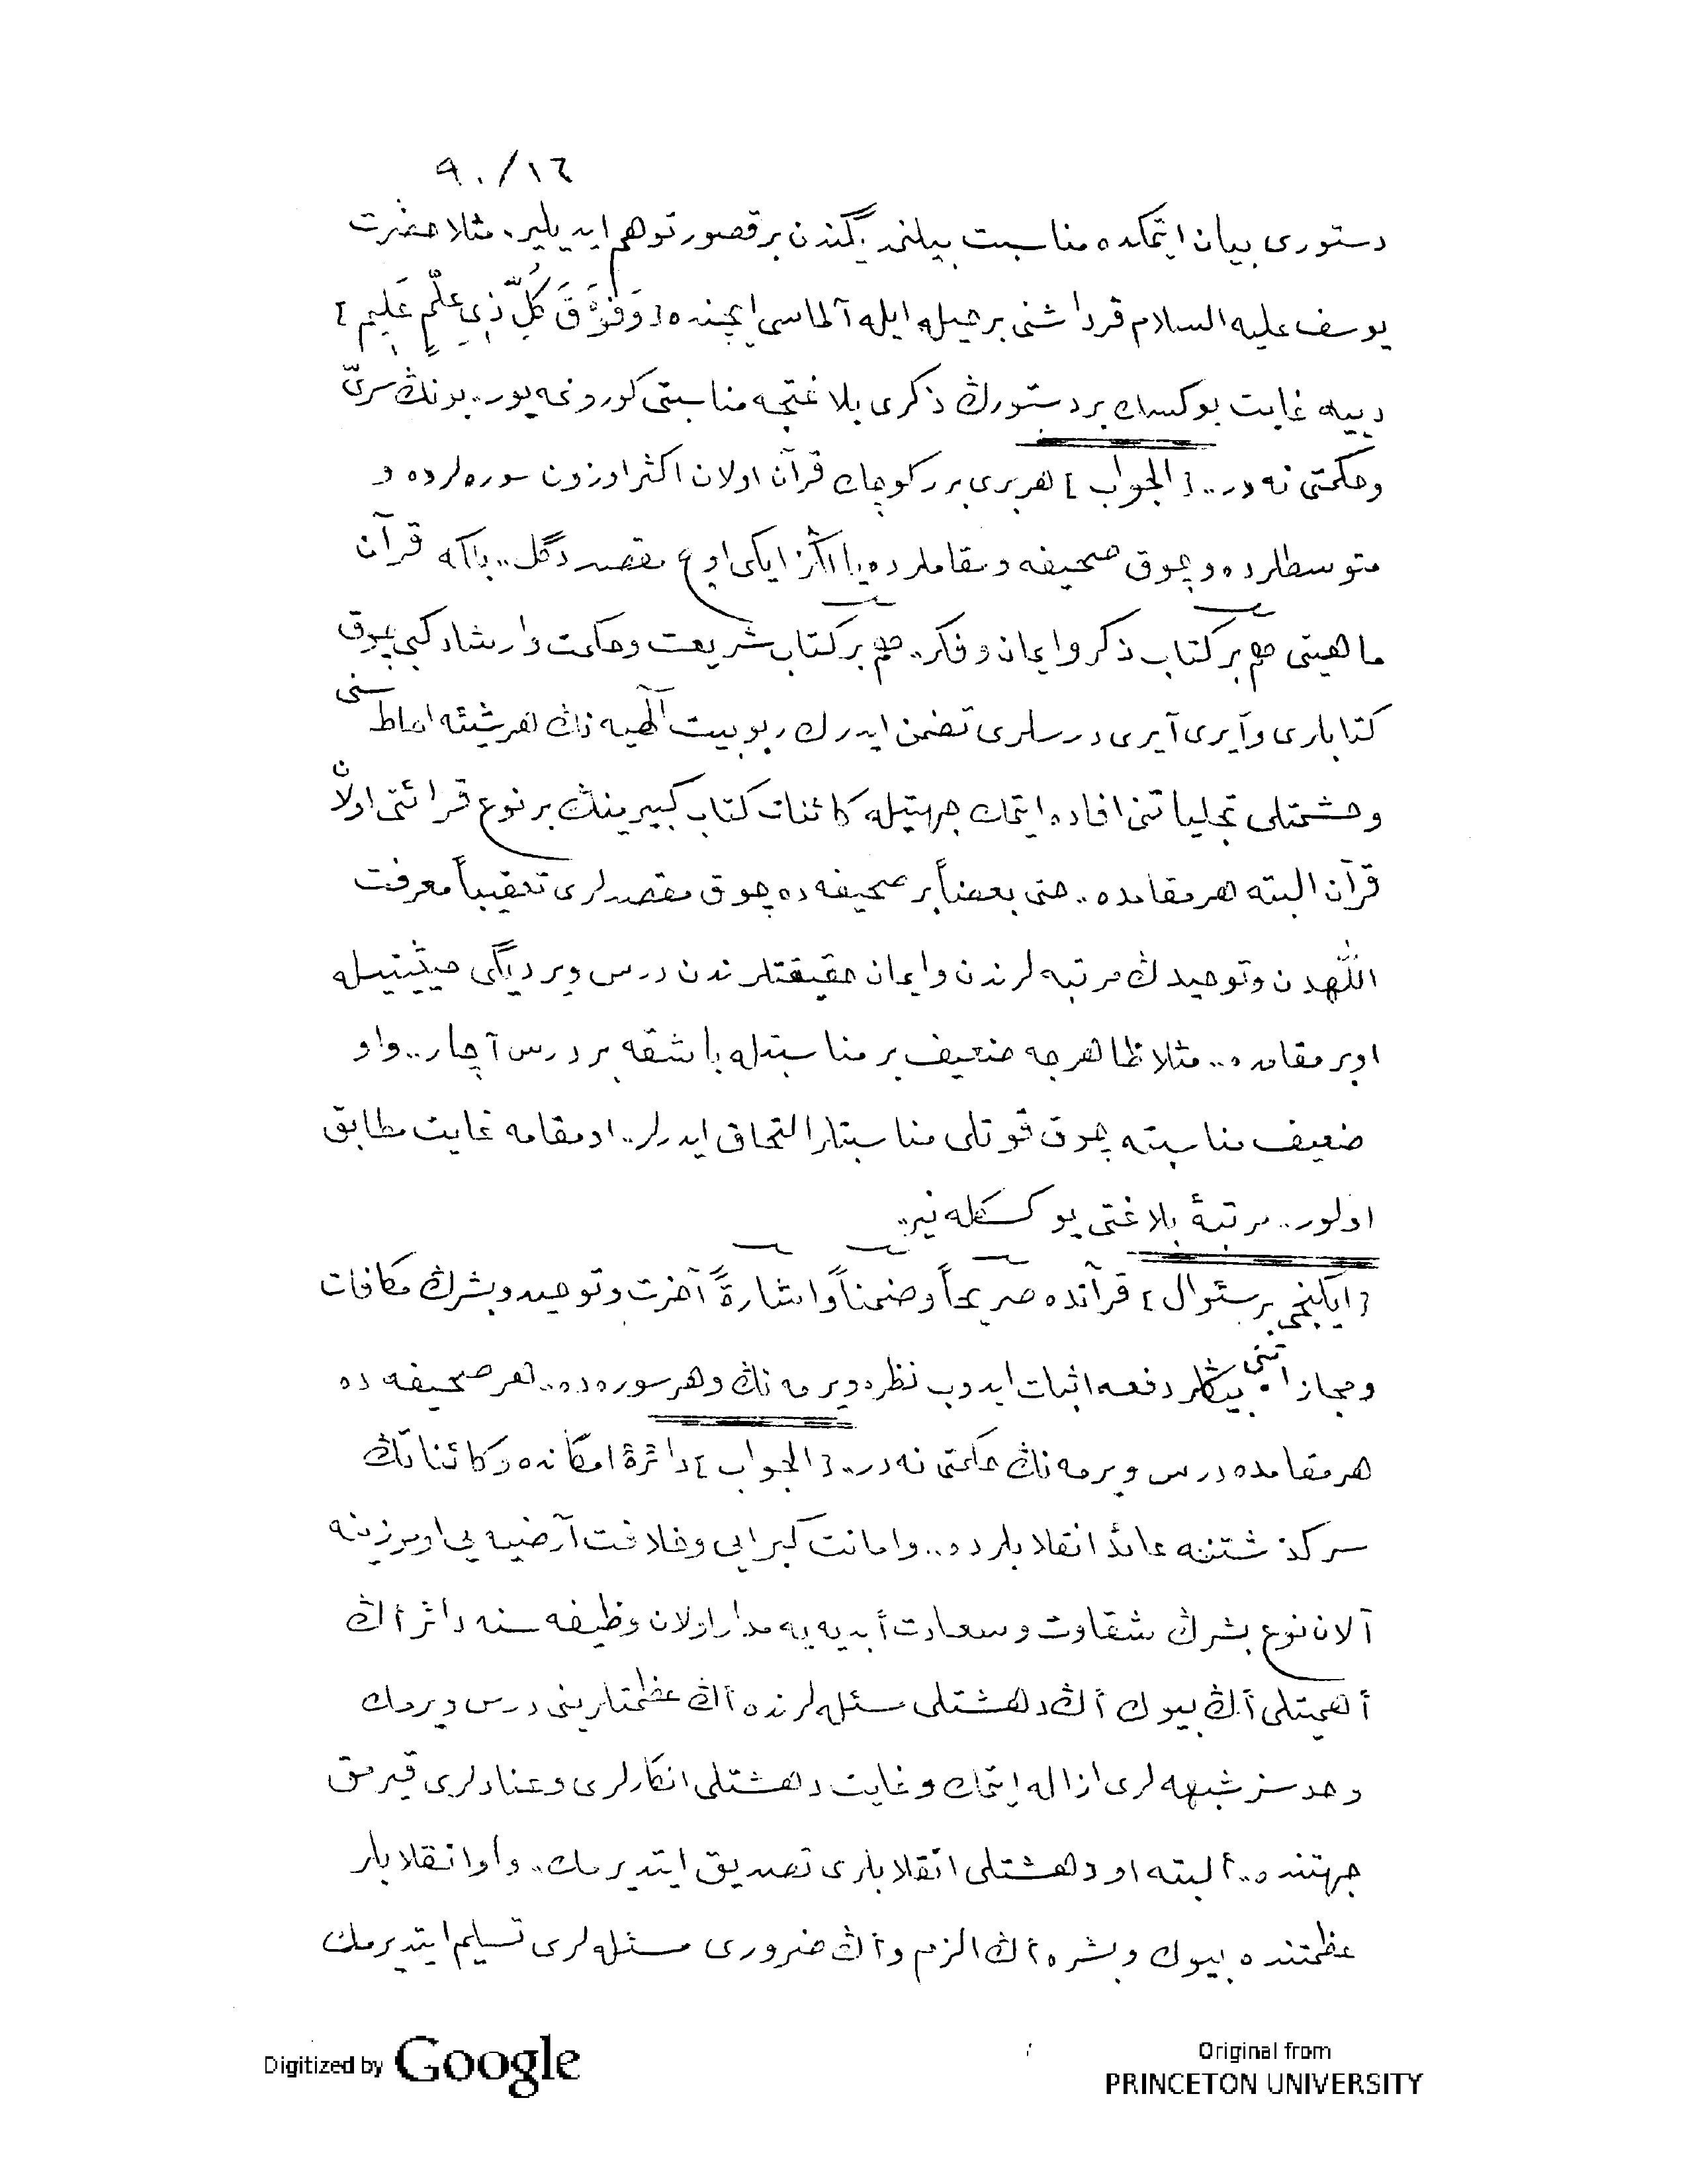 ٩٠/١٦
دستوری بیان ایتمكده مناسبت بیلنمدیگندن بر قصور توهم ایدیلیر. مثلا حضرت
یوسف علیه السلام قرداشنی بر حیله ایله آلماسی ایچنده [وَفَوْقَ كُلِّ ذِى عِلْمٍ عَلِيمٍ]
دییه غایت یوكسك بر دستورڭ ذكری بلاغتجه مناسبتی كورونمه‌یور.. بونڭ سرّی
و حكمتی نه در.. [الجواب] هر بری برر كوچك قرآن اولان اكثر اوزون سوره‌لرده و
متوسطلرده و چوق صحیفه و مقاملرده یاڭز ایكی اوچ مقصد دگل.. بلكه قرآن
ماهیتی هم بر كتاب ذكر و ایمان و فكر.. هم بر كتاب شریعت و حكمت و ارشاد كبی چوق
كتابلری و آیری آیری درسلری تضمن ایدرك ربوبیت آلٓهیه نڭ هر شیئه احاطه سنی
و حشمتلی تجلیاتنی افاده ایتمك جهتیله كائنات كتاب كبیرینڭ بر نوع قرائتی اولان
قرآن البته هر مقامده.. حتی بعضاً بر صحیفه ده چوق مقصدلری تعقیباً معرفت
اللّٰهدن و توحیدڭ مرتبه لرندن و ایمان حقیقتلرندن درس ویردیگی حیثیتیله
اوبر مقامده.. مثلا ظاهرجه ضعیف بر مناسبتله باشقه بر درس آچار.. و او
ضعیف مناسبته چوق قوتلی مناسبتلر التحاق ایدرلر.. او مقامه غایت مطابق
اولور.. مرتبۀ بلاغتی یوكسكله نیر..
[ایكنجی بر سئوال] قرآنده صریحاً و ضمناً و اشارةً آخرت و توحید و بشرڭ مكافات
و مجازاتنی بیڭلر دفعه اثبات ایدوب نظره ویرمه نڭ و هر سوره‌ده.. هر صحیفه ده
هر مقامده درس ویرمه نڭ حكمتی نه در.. [الجواب] دائرۀ امكانده و كائناتڭ
سركذشتنه عائد انقلابلرده.. و امانت كبرایی و خلافت آرضیه یی اوموزینه
آلان نوع بشرڭ شقاوت و سعادت أبدیه یه مدار اولان وظیفه سنه دائر أڭ
أهمیتلی أڭ بیوك أڭ دهشتلی مسئله لرنده أڭ عظمتلرینی درس ویرمك
و حدسز شبهه لری ازاله ایتمك و غایت دهشتلی انكارلری و عنادلری قیرمق
جهتنده.. ألبته او دهشتلی انقلابلری تصدیق ایتدیرمك.. و او انقلابلر
عظمتنده بیوك و بشره أڭ الزم و أڭ ضروری مسئله لری تسلیم ایتدیرمك
Digitized by Google
Original from
PRINCETON UNIVERSITY